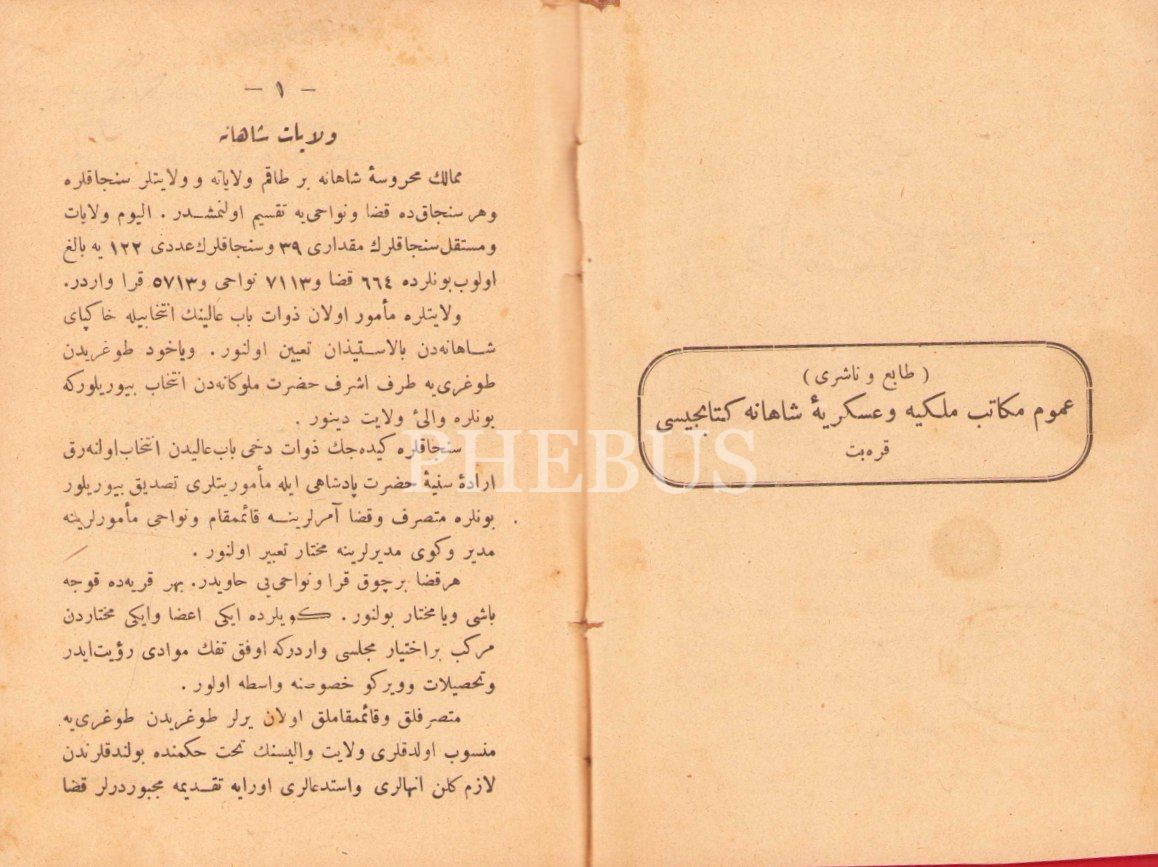 ( طابع و ناشری )
عموم مكاتب ملكیه وعسكریهٔ شاهانه كتابجیسی
قره‌بت
— ١ —
ولایات شاهانه
ممالك محروسهٔ شاهانه بر طاقم ولایاته و ولایتلر سنجاقلره
وهر سنجاق‌ده قضا ونواحی‌یه تقسیم اولنمشـدر . الیوم ولایات
ومستقل سنجاقلرك مقداری ٣٩ وسنجاقلرك عددی ١٢٢ یه بالغ
اولوب بونلرده ٦٦٤ قضا و٧١١٣ نواحی و٥٧١٣ قرا واردر.
ولایتلره مأمور اولان ذوات باب عالینك انتخابیله خاكپای
شـاهانه‌دن بالاستیذان تعیین اولنور . ویاخود طوغریدن
طوغری‌یه طرف اشرف حضرت ملوكانه‌دن انتخاب بیوریلوركه
بونلره والئ ولایت دینور .
سنجاقلره كیده‌جك ذوات دخی باب عالیدن انتخاب اولنه‌رق
ارادهٔ سنیهٔ حضرت پادشاهی ایله مأموریتلری تصدیق بیوریلور
بونلره متصرف وقضا آمرلرینـه قائممقام ونواحی مأمورلرینه
مدیر وكوی مدیرلرینه مختار تعبیر اولنور .
هرقضا برچوق قرا ونواحی‌یی حاویدر. بهر قریه‌ده قوجه
باشی ویا مختار بولنور . كویلرده ایكی اعضا وایكی مختاردن
مركب براختیار مجلسی واردركه اوفق تفك موادی رؤیت‌ایدر
وتحصیلات وویركو خصوصنه واسطه اولور .
متصرفلق وقائممقاملق اولان یرلر طوغریدن طوغری‌یه
منسوب اولدقلری ولایت والیسنك تحت حكمنده بولندقلرندن
لازم كلن انهالری واستدعالری اورایه تقـدیمه مجبوردرلر قضا
PHEBUS